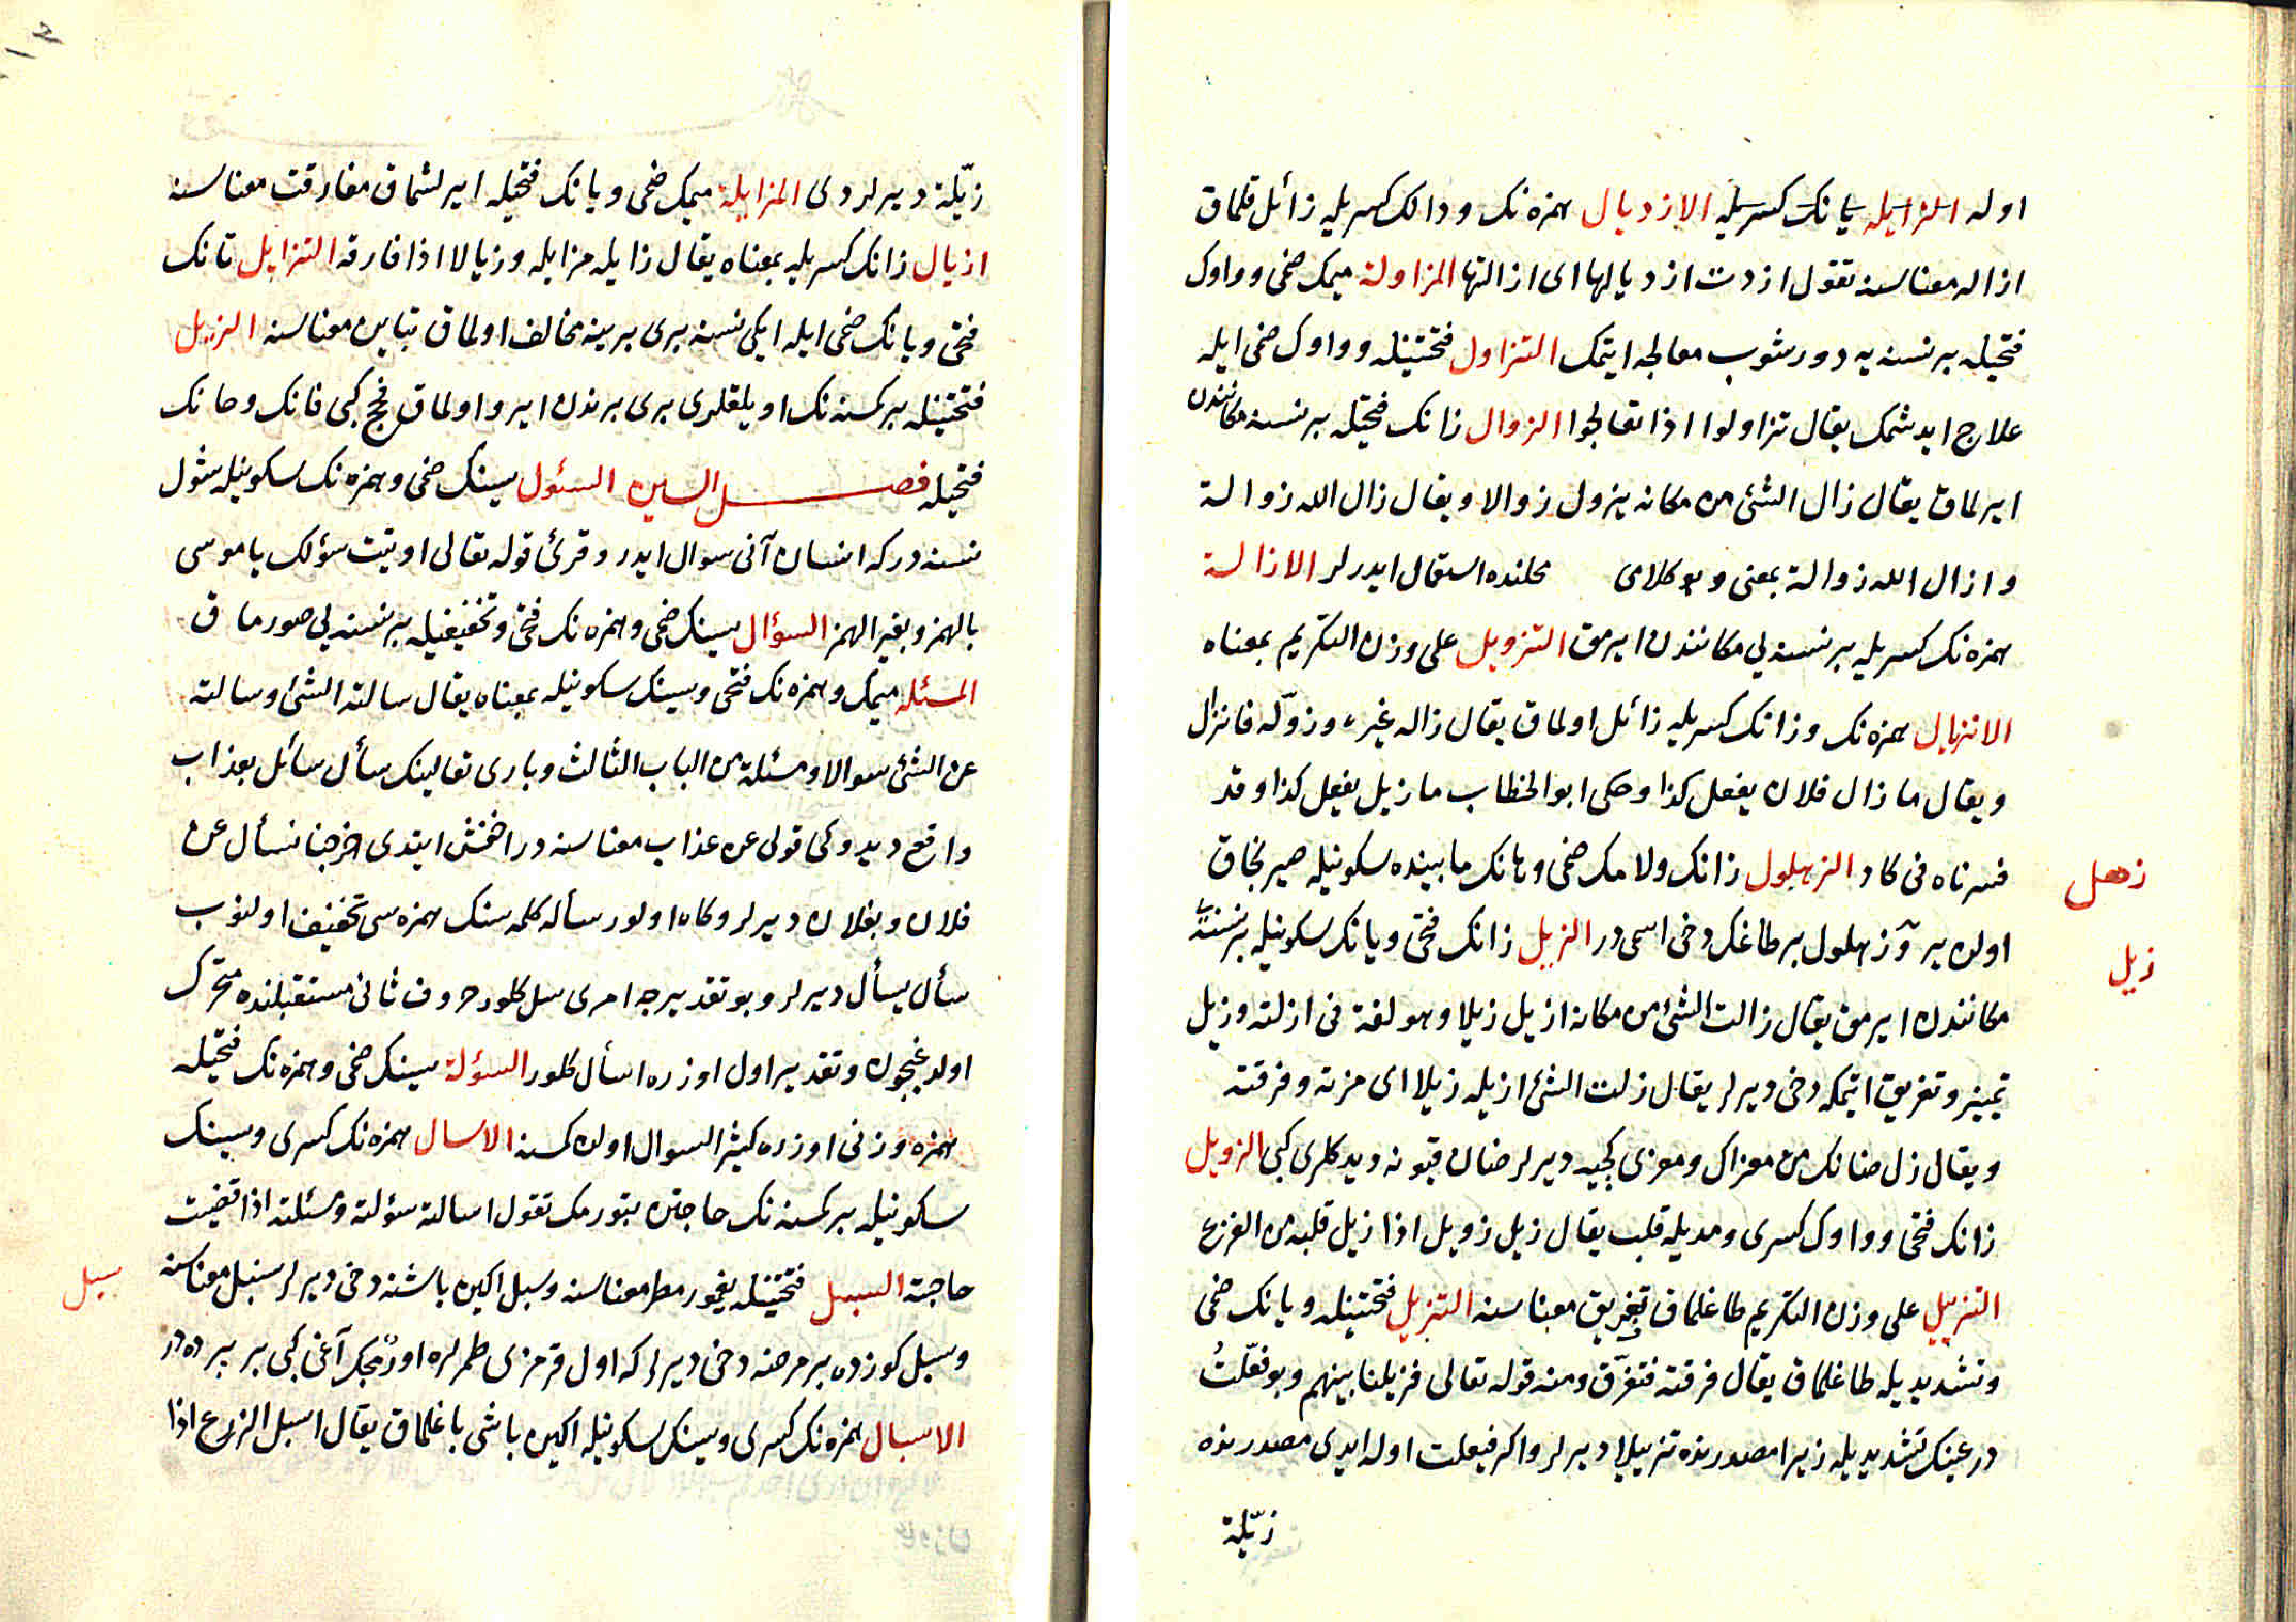 اوله المزایله یانک کسریله الازدیال همزه نک ودالک کسریله زائل قلماق
ازاله معناسنه تقول ازدت ازدیالها ای ازالتها المزاولة میمک ضمی وواوک
فتحیله برنسنه یه دورشوب معالجه ایتمک التزاول فتحتینله وواوک ضمی ایله
علاج ایدشمک یقال تزاولوا اذا تعالجوا الزوال زانک فتحیله برنسنه مکانندن
ایرلماق یقال زال الشئ من مکانه یزول زوالا ویقال زال الله زوالة
وازال الله زوالة بمعنی وبو کلامی محلنده استعمال ایدرلر الازالة
همزه نک کسریله برنسنه یی مکانندن ایرمق التزویل علی وزن التکریم بمعناه
الانزیال همزه نک وزانک کسریله زائل اولماق یقال زاله غیره وزوّله فانزال
ویقال ما زال فلان یفعل کذا وحکی ابو الخطاب ما زیل یفعل کذا وقد
فسرناه فی کاد الزهلول زانک ولامک ضمی وهانک مابینده سکونیله
زهل
اولن یر وزهلول بر طاغک دخی اسمی در الزیل زانک فتحی ویانک سکونیله برنسنه
زیل
مکانندن ایرمق یقال زالت الشئ من مکانه ازیل زیلا وهو لغة فی ازلته وزیل
تمییز وتفریق ایتمکه دخی دیرلر یقال زلت الشئ ازیله زیلا ای مزته وفرقته
ویقال زل ضانک من معزاک ومعزی کچیه دیرلر ضان قیونه دیدکلری کبی الزویل
زانک فتحی وواوک کسری ومدیله قلب یقال زیل زویل اذا زیل قلبه من الفزع
التزییل علی وزن التکریم طاغلماق تفریق معناسنه التزیل فتحتینله ویانک ضمی
وتشدیدیله طاغلماق یقال فرقته فتفرّق ومنه قوله تعالی فزیلنا بینهم وبو فعّلتُ
در عینک تشدیدیله زیرا مصدرنده تزییلا دیرلر واکر فیعلت اوله ایدی مصدرنده
زیّلة
زیّلة دیرلردی المزایلة میمک ضمی ویانک فتحیله ایرلشماق مفارقت معناسنه
ازیال زانک کسریله بمعناه یقال زایله مزایله وزیالا اذا فارقه التزایل تانک
فتحی ویانک ضمی ایله ایکی نسنه بری برینه مخالف اولماق تباین معناسنه الزیل
فتحتینله بر کمسنه نک اویلقلری بری برندن ایرو اولماق فحج کبی فانک وحانک
فتحیله فصل السین السئول سینک ضمی وهمزه نک سکونیله شول
نسنه درکه انسان آنی سوال ایدر وقرئ قوله تعالی اوتیت سؤلک یا موسی
بالهمز وبغیر الهمز السؤال سینک ضمی وهمزه نک فتحی وتخفیفیله برنسنه یی صورماق
المسئله میمک وهمزه نک فتحی وسینک سکونیله بمعناه یقال سالته الشئ وسالته
عن الشئ سوالا ومسئلة من الباب الثالث وباری تعالینک سأل سائل بعذاب
واقع دیدوکی قولی عن عذاب معناسنه در اخفش ایتدی خرجنا نسأل عن
فلان وبفلان دیرلر وکاه اولور سأله کلمه سنک همزه سی تخفیف اولنوب
سأل یسأل دیرلر وبو تقدیرجه امری سل کلور حروف ثانی مستقبلنده متحرک
اولدیغیچون وتقدیر اول اوزره اسأل کلور السؤلة سینک ضمی وهمزه نک فتحیله
همزه وزنی اوزره کثیر السوال اولن کمسنه الاسال همزه نک کسری وسینک
سکونیله بر کمسنه نک حاجتن بتورمک تقول اسالته سؤلته ومسئلته اذا قضیت
حاجته السبل فتحتینله یغمور مطر معناسنه وسبل اکین باشنه دخی دیرلر سنبل معناسنه
سبل
وسبل کوزده بر مرضه دخی دیرلر که اول قرمزی طمرلره اورمجک آغی کبی بر پرده در
الاسبال همزه نک کسری وسینک سکونیله اکین باشی باغلماق یقال اسبل الزرع اذا